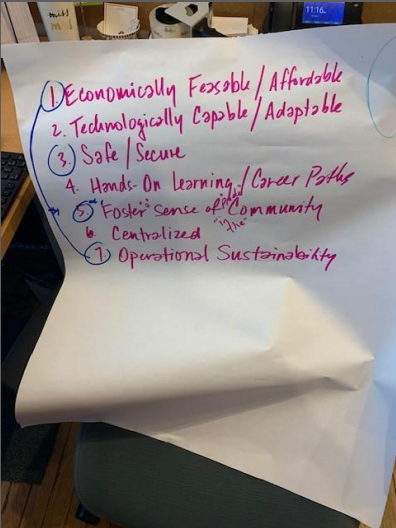 11:16
1. Economically Feasable / Affordable
2. Technologically Capable / Adaptable
3. Safe / Secure
4. Hands-On Learning / Career Paths
5. Foster Sense of Community
"the"
6. Centralized
7. Operational Sustainability